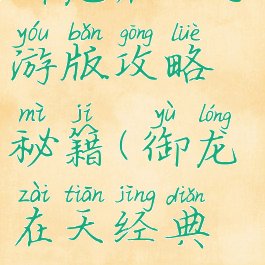 yóu bǎn gōng lüè
游版攻略
mì jí yù lóng
秘籍(御龙
zài tiān jīng diǎn
在天经典